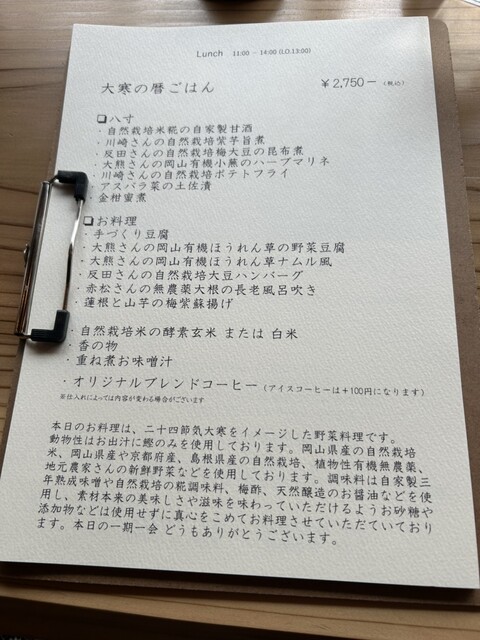 Lunch 11:00 - 14:00 (L.O.13:00)
大寒の暦ごはん ¥2,750－（税込）
❏八寸
・自然栽培米糀の自家製甘酒
・川崎さんの自然栽培紫芋旨煮
・反田さんの自然栽培梅大豆の昆布煮
・大熊さんの岡山有機小蕪のハーブマリネ
・川崎さんの自然栽培ポテトフライ
・アスパラ菜の土佐漬
・金柑蜜煮
❏お料理
・手づくり豆腐
・大熊さんの岡山有機ほうれん草の野菜豆腐
・大熊さんの岡山有機ほうれん草ナムル風
・反田さんの自然栽培大豆ハンバーグ
・赤松さんの無農薬大根の長老風呂吹き
・蓮根と山芋の梅紫蘇揚げ
・自然栽培米の酵素玄米 または 白米
・香の物
・重ね煮お味噌汁
・オリジナルブレンドコーヒー（アイスコーヒーは＋100円になります）
※仕入れによっては内容が変わる場合がございます
本日のお料理は、二十四節気大寒をイメージした野菜料理です。
動物性はお出汁に鰹のみを使用しております。岡山県産の自然栽培
米、岡山県産や京都府産、島根県産の自然栽培、植物性有機無農薬、
地元農家さんの新鮮野菜などを使用しております。調味料は自家製三
年熟成味噌や自然栽培の糀調味料、梅酢、天然醸造のお醤油などを使
用し、素材本来の美味しさや滋味を味わっていただけるようお砂糖や
添加物などは使用せずに真心をこめてお料理させていただいており
ます。本日の一期一会 どうもありがとうございます。